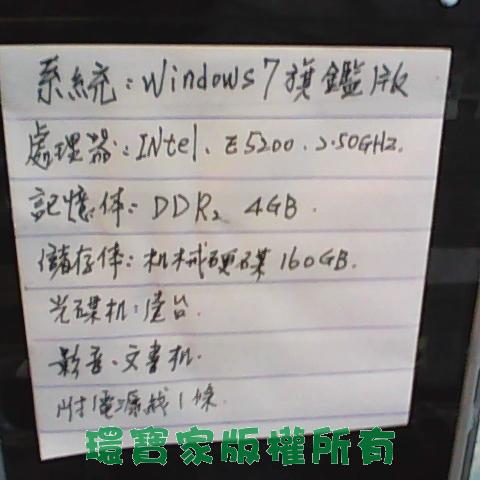 系統：Windows 7 旗鑑版
處理器：INtel、E5200、2.50GHZ.
記憶体：DDR2 4GB.
儲存体：机械硬碟 160GB.
光碟机：壹台.
影音、文書机.
附電源線1條
環寶家版權所有